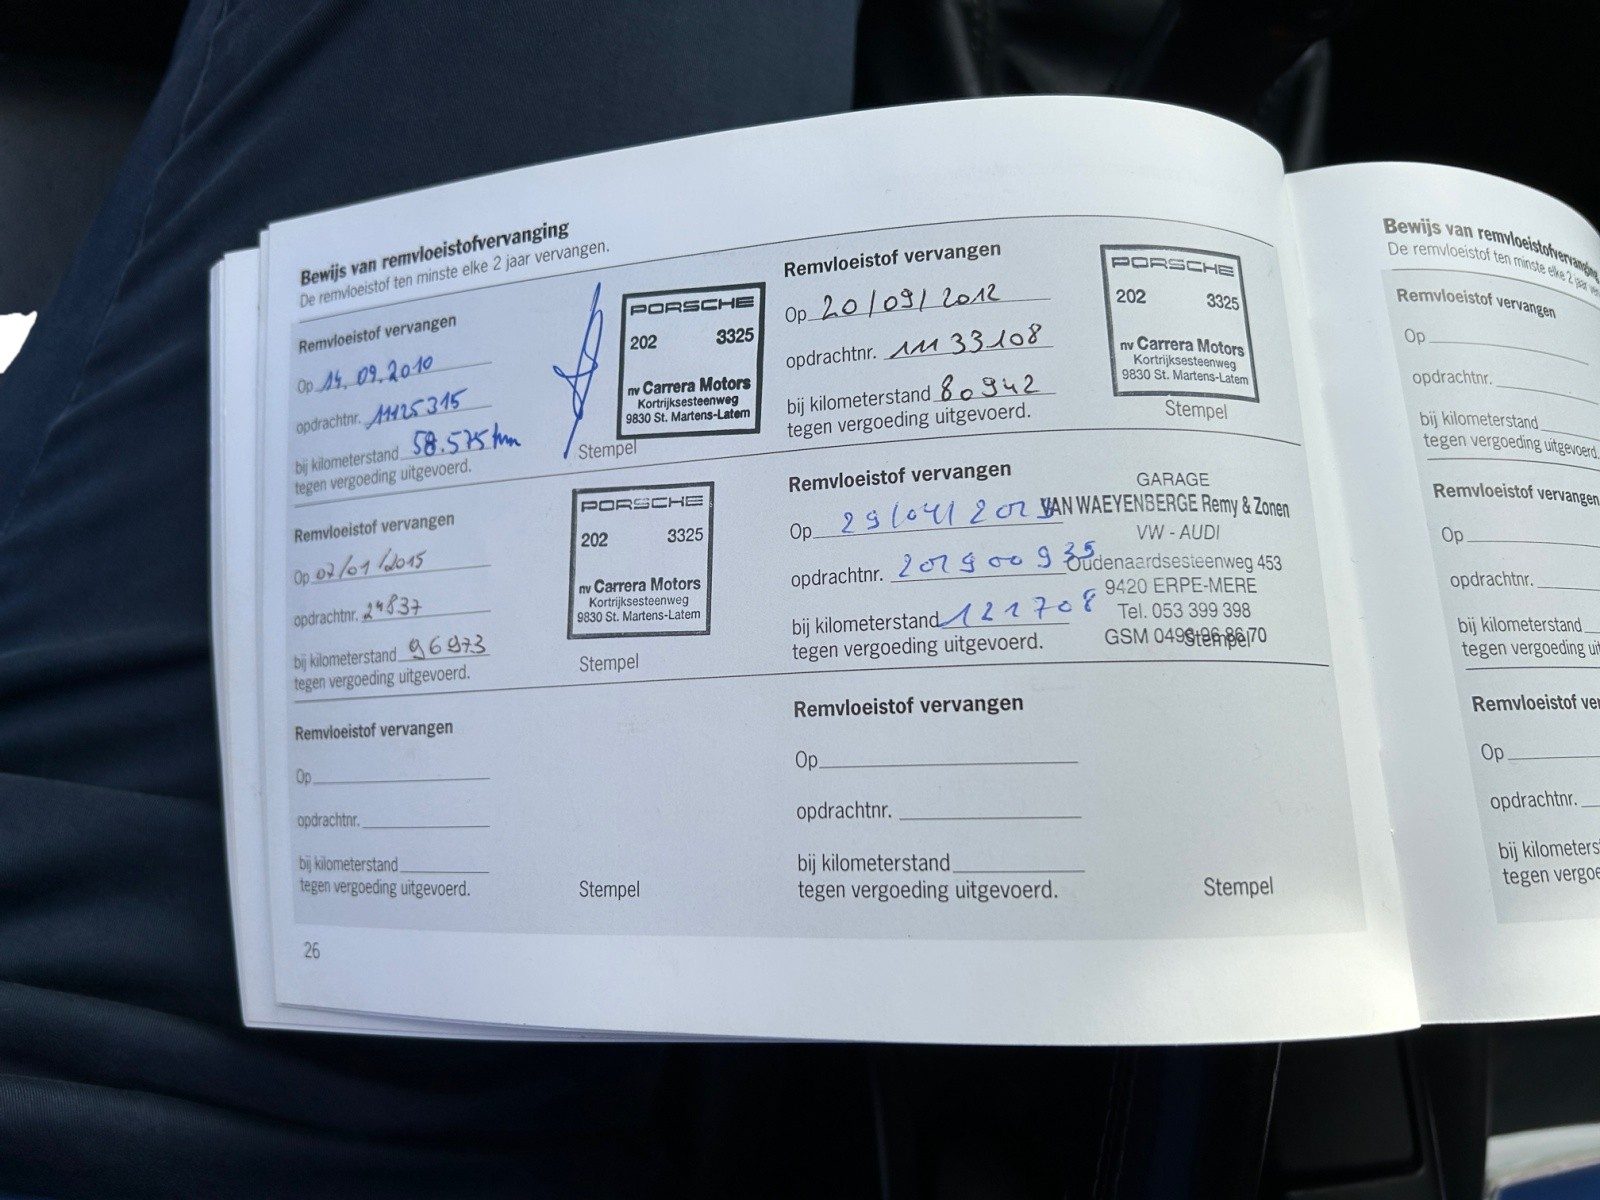 Bewijs van remvloeistofvervanging
De remvloeistof ten minste elke 2 jaar vervangen.
Remvloeistof vervangen
Op 14.09.2010
opdrachtnr. 11125315
bij kilometerstand 58.575 km
tegen vergoeding uitgevoerd.
PORSCHE
202 3325
nv Carrera Motors
Kortrijksesteenweg
9830 St. Martens-Latem
Stempel
Remvloeistof vervangen
Op 20/09/2012
opdrachtnr. 1133108
bij kilometerstand 80942
tegen vergoeding uitgevoerd.
PORSCHE
202 3325
nv Carrera Motors
Kortrijksesteenweg
9830 St. Martens-Latem
Stempel
Remvloeistof vervangen
Op 07/01/2015
opdrachtnr. 24837
bij kilometerstand 96973
tegen vergoeding uitgevoerd.
PORSCHE
202 3325
nv Carrera Motors
Kortrijksesteenweg
9830 St. Martens-Latem
Stempel
Remvloeistof vervangen
Op 29/04/2019
opdrachtnr. 201900935
bij kilometerstand 121708
tegen vergoeding uitgevoerd.
GARAGE
VAN WAEYENBERGE Remy & Zonen
VW - AUDI
Oudenaardsesteenweg 453
9420 ERPE-MERE
Tel. 053 399 398
GSM 0496 96 86 70
Stempel
Remvloeistof vervangen
Op
opdrachtnr.
bij kilometerstand
tegen vergoeding uitgevoerd.
Stempel
Remvloeistof vervangen
Op
opdrachtnr.
bij kilometerstand
tegen vergoeding uitgevoerd.
Stempel
26
Bewijs van remvloeistofvervanging
De remvloeistof ten minste elke 2 jaar
Remvloeistof vervangen
Op
opdrachtnr.
bij kilometerstand
tegen vergoeding uitgevoerd.
Remvloeistof vervangen
Op
opdrachtnr.
bij kilometerstand
tegen vergoeding
Remvloeistof
Op
opdrachtnr.
bij
tegen